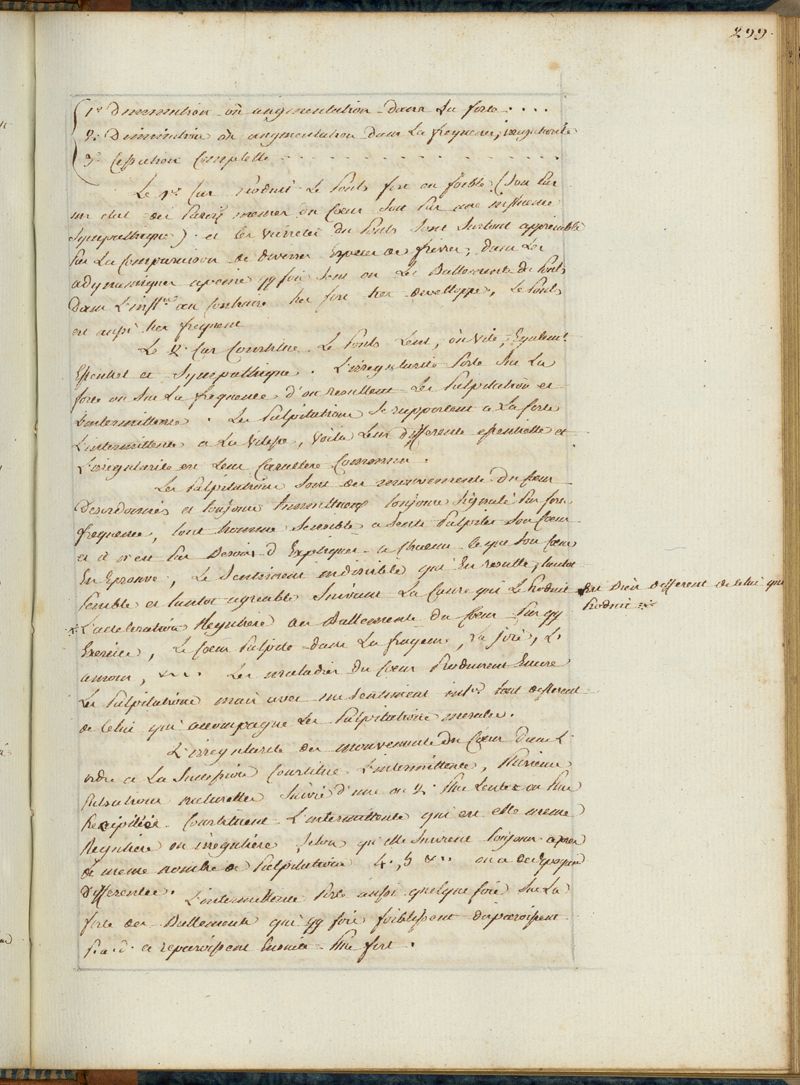 299.
1.° Diminution ou augmentation dans la force . . . .
2.° Diminution ou augmentation dans la frequence, irregularité
3.° Cessation Complette . . . . . . . . . .
Le 1.er Cas Produit le Pouls fort ou foible (Soit Par
un etat des Parois memes du Coeur Soit Par une influence
Sympathique) . et les varietés du Pouls Sont Surtout appreciable
Par La Comparaison de diverses Especes de fievres, dans les
adynamiques apeine qq fois Sent on Les Battements du Pouls
Dans L'infl.on au Contraire tres fort tres developpé, le Pouls
est aussi tres frequent
Le 2.e Cas Constitue Le Pouls Lent, ou Vite, Egalem.t
Essentiel et Sympathique . L'irregularité Porte Sur La
force ou Sur La frequence d'ou resultent Les Palpitations et
L'intermittence . Les Palpitations Se rapportent a La force
L'intermittence a La Vitesse, Voila Leur difference essentielle et
L'irregularité est Leur Caractere Commun .
Les Palpitations Sont des mouvements du Coeur
Desordonnés et toujours toujours Par Son
frequence, tout homme Sensible a Senti Palpiter Son Coeur
et il n'est Pas Besoin d'Expliquer a Chacun Ce que Son Coeur
En Eprouve, Le Sentiment indicible qui En resulte, tantot
Penible et tantot agreable Suivant La Cause qui Le Produit est Bien different de Celui que
Produit
L'acceleration Reguliere des Battements du Coeur Par qq
Exercice, Le Coeur Palpite dans La frayeur, La joie, L'
amour, &... Les maladies du Coeur Produisent Encore
Les Palpitations mais avec un Sentiment tout different
de Celui qui accompagne Les Palpitations morales.
L'irregularité des mouvements du Coeur dans L'
ordre de La Succession Constitue L'intermittence, Plusieurs
Pulsations naturelles Suivies d'une ou 2. Plus Lentes ou Plus
Precipitées Constituent L'intermittence qui est elle meme
Reguliere ou irreguliere, Selon qu'elle Survient toujours apres
le meme nombre de Palpitations 4., 5 &.. ou a des Epoques
Differentes. L'intermittence Porte aussi quelque fois Sur La
force des Battements qui qq fois foiblissent disparoissent
P.a.d. et reparoissent Ensuite Plus fort .